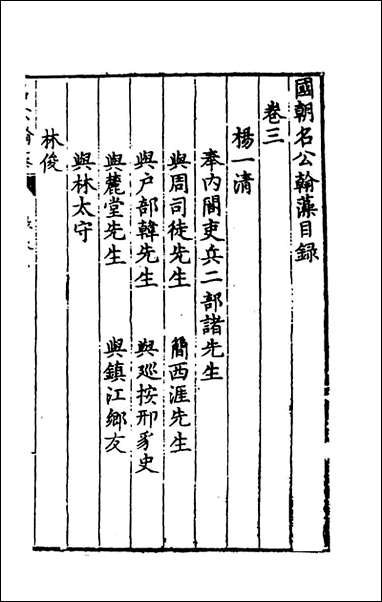 國朝名公翰藻目録
卷三
楊一清
奉内閣吏兵二部諸先生
與周司徒先生 簡西涯先生
與户部韓先生 與廵按邢豸史
與麓堂先生 與鎮江鄉友
與林太守
林俊